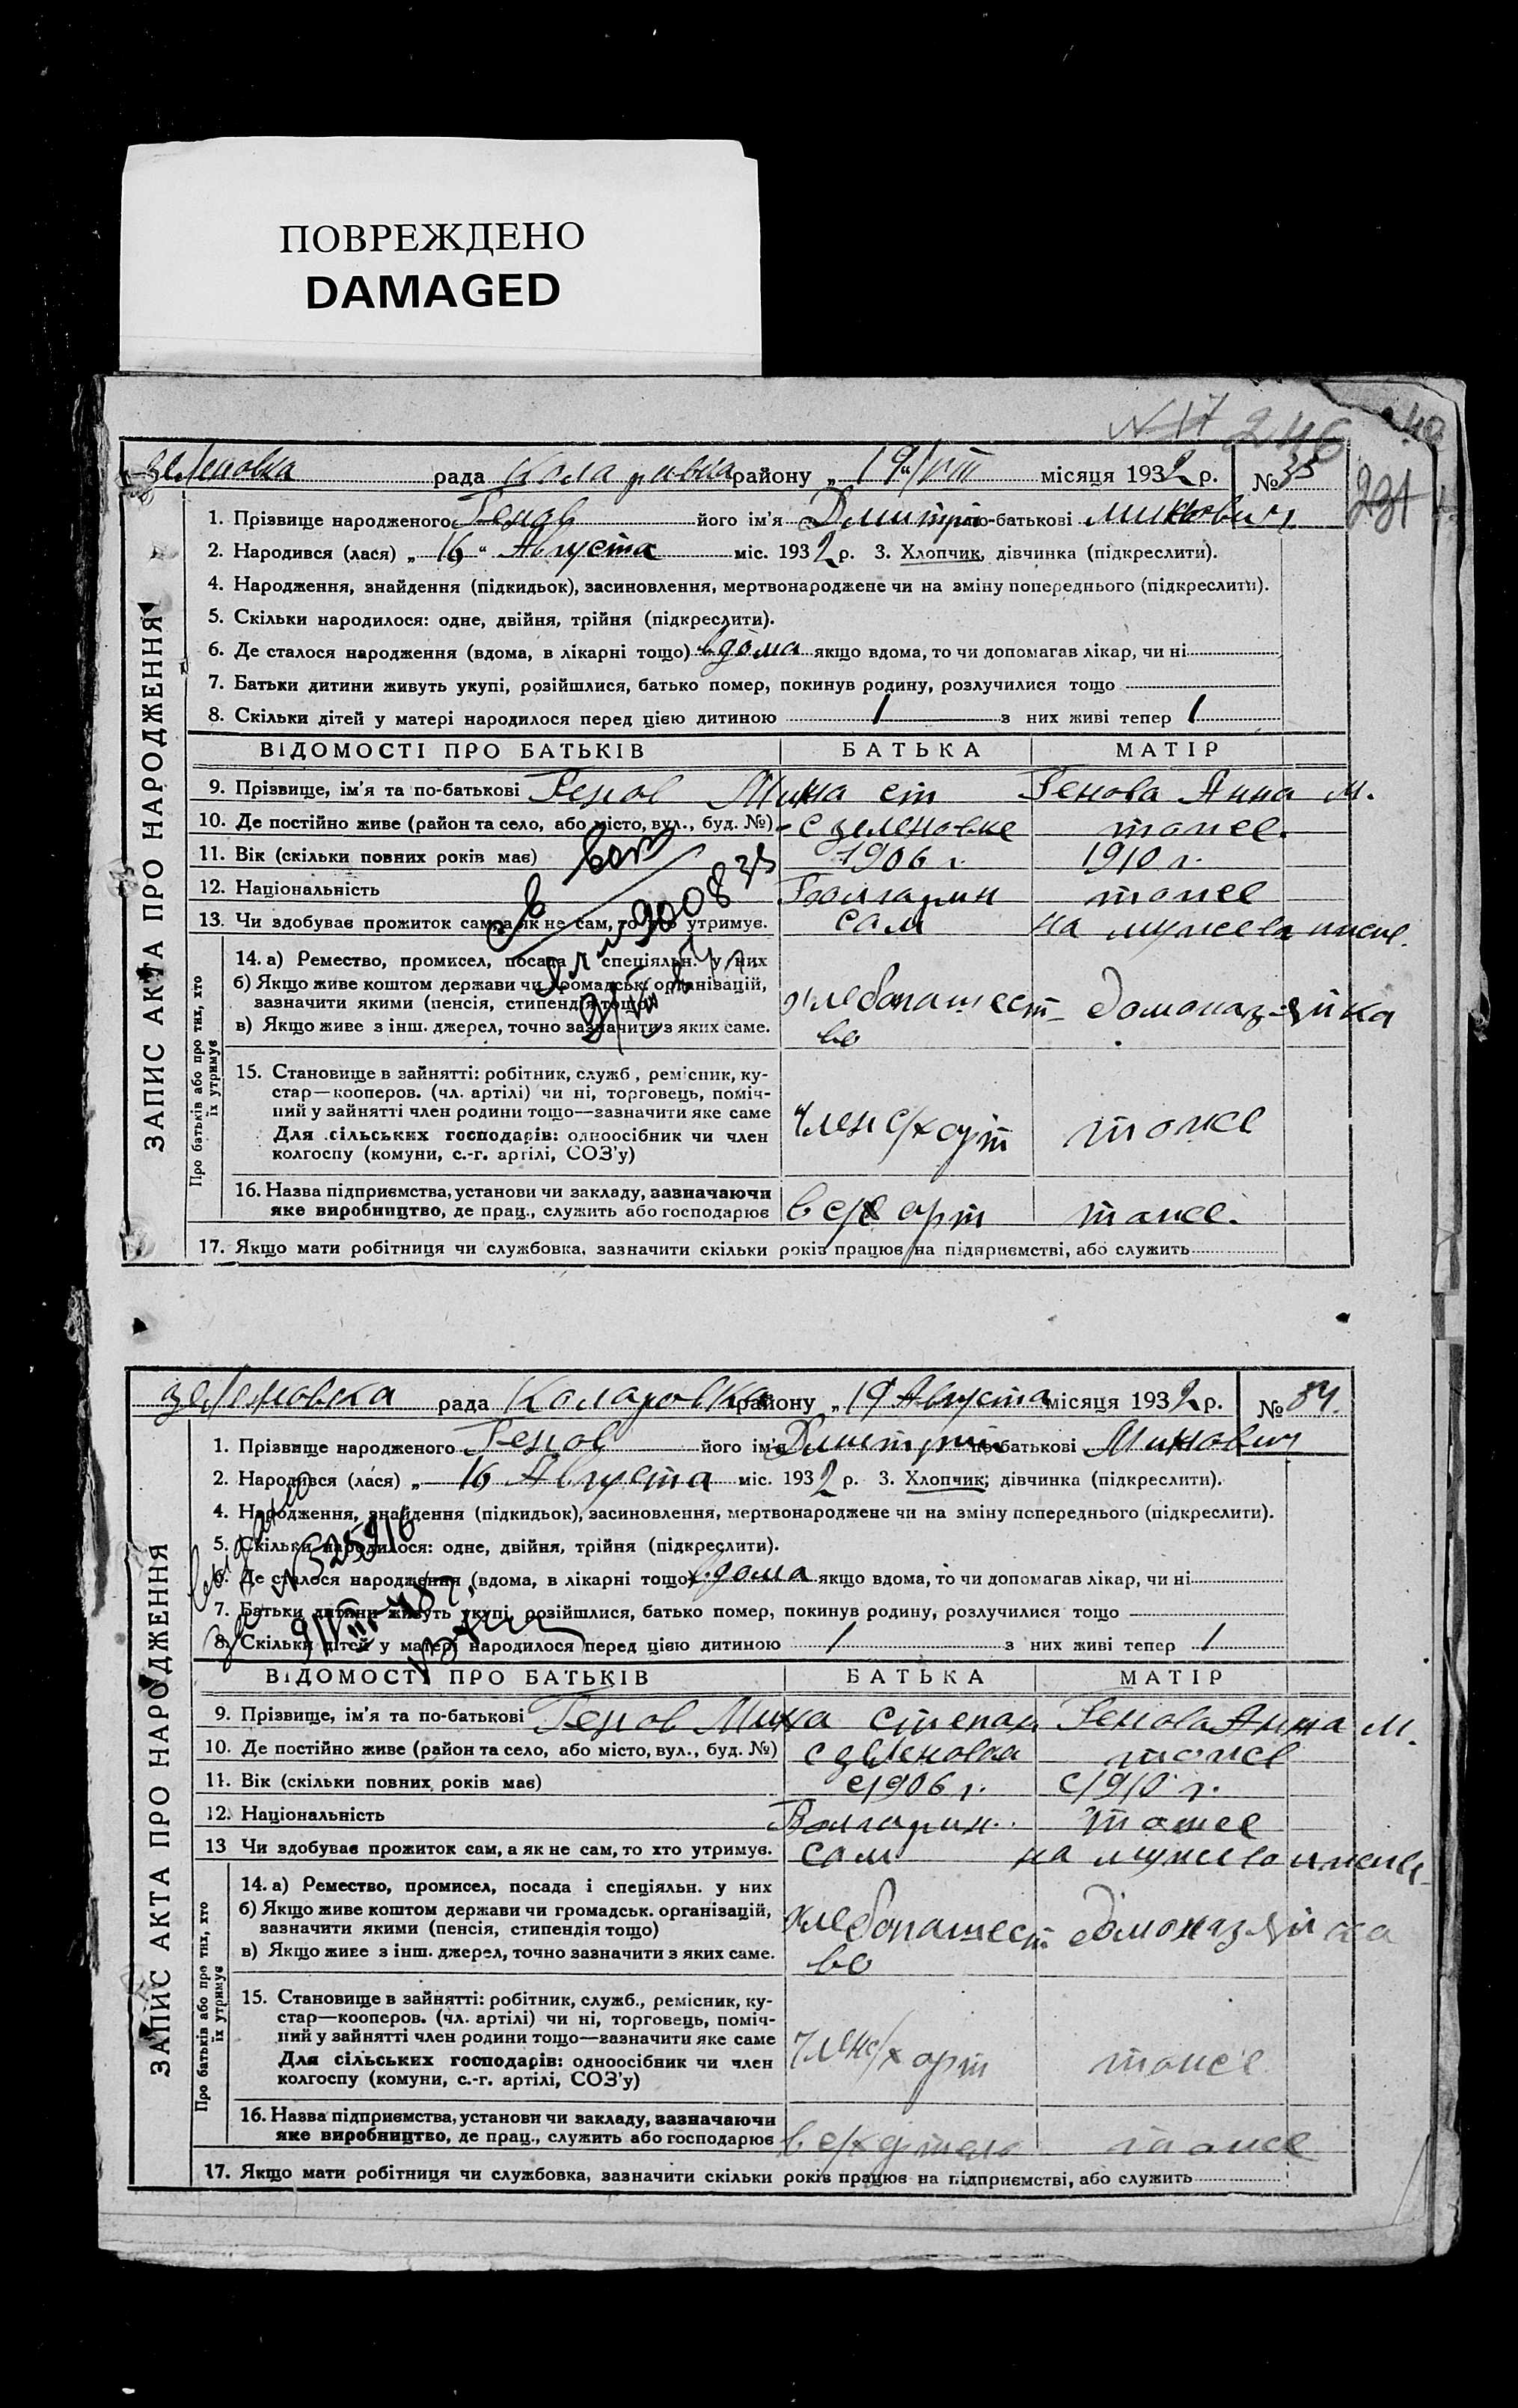 ПОВРЕЖДЕНО
DAMAGED
N 17 246
231
зеленовка рада Коларивка району „ 19 " VIII місяця 1932 р. № 33
1. Прізвище народженого Генов його ім'я Дмитрий по-батькові Минкович
2. Народився (лася) „ 16 " Августа міс. 1932 р. 3. Хлопчик, дівчинка (підкреслити).
4. Народження, знайдення (підкидьок), засиновлення, мертвонароджене чи на зміну попереднього (підкреслити).
5. Скільки народилося: одне, двійня, трійня (підкреслити).
6. Де сталося народження (вдома, в лікарні тощо) вдома якщо вдома, то чи допомагав лікар, чи ні
7. Батьки дитини живуть укупі, розійшлися, батько помер, покинув родину, розлучилися тощо
8. Скільки дітей у матері народилося перед цією дитиною 1 з них живі тепер 1
ЗАПИС АКТА ПРО НАРОДЖЕННЯ
ВІДОМОСТІ ПРО БАТЬКІВ БАТЬКА МАТІР
9. Прізвище, ім'я та по-батькові Генов Ст Генова Анна М.
10. Де постійно живе (район та село, або місто, вул., буд. №) с зеленовке тоже
11. Вік (скільки повних років має) 1906 г. 1910 г.
12. Національність Болгарин тоже
13. Чи здобуває прожиток сам, а як не сам, то хто утримує. сам на мужева иждив.
Про батьків або про тих, хто їх утримує
14. а) Ремество, промисел, посада і спеціяльн. у них
б) Якщо живе коштом держави чи громадськ. організацій,
зазначити якими (пенсія, стипендія тощо)
в) Якщо живе з інш. джерел, точно зазначити з яких саме.
хлебопашест- домохазяйка
во
15. Становище в зайнятті: робітник, служб, ремісник, ку-
стар—кооперов. (чл. артілі) чи ні, торговець, поміч-
ний у зайнятті член родини тощо—зазначити яке саме
Для сільських господарів: одноосібник чи член
колгоспу (комуни, с.-г. артілі, СОЗ'у)
член с/х арт тоже
16. Назва підприємства, установи чи закладу, зазначаючи
яке виробництво, де прац., служить або господарює в с/х арт тоже.
17. Якщо мати робітниця чи службовка, зазначити скільки років працює на підприємстві, або служить
зеленовка рада Коларовка району „ 19 Августа місяця 1932 р. № 34.
1. Прізвище народженого Генов його ім'я Дмитрий по-батькові Минкович
2. Народився (лася) „ 16 Августа міс. 1932 р. 3. Хлопчик; дівчинка (підкреслити).
4. Народження, знайдення (підкидьок), засиновлення, мертвонароджене чи на зміну попереднього (підкреслити).
5. Скільки народилося: одне, двійня, трійня (підкреслити).
6. Де сталося народження (вдома, в лікарні тощо) вдома якщо вдома, то чи допомагав лікар, чи ні
7. Батьки дитини живуть укупі, розійшлися, батько помер, покинув родину, розлучилися тощо
8. Скільки дітей у матері народилося перед цією дитиною 1 з них живі тепер 1
ЗАПИС АКТА ПРО НАРОДЖЕННЯ
ВІДОМОСТІ ПРО БАТЬКІВ БАТЬКА МАТІР
9. Прізвище, ім'я та по-батькові Генов Степан Генова Анна М.
10. Де постійно живе (район та село, або місто, вул., буд. №) с зеленовка тоже
11. Вік (скільки повних років має) с 1906 г. с 1910 г.
12. Національність Болгарин. тоже
13 Чи здобуває прожиток сам, а як не сам, то хто утримує. сам на мужева иждив
Про батьків або про тих, хто їх утримує
14. а) Ремество, промисел, посада і спеціяльн. у них
б) Якщо живе коштом держави чи громадськ. організацій,
зазначити якими (пенсія, стипендія тощо)
в) Якщо живе з інш. джерел, точно зазначити з яких саме.
хлебопашест домохазяйка
во
15. Становище в зайнятті: робітник, служб., ремісник, ку-
стар—кооперов. (чл. артілі) чи ні, торговець, поміч-
ний у зайнятті член родини тощо—зазначити яке саме
Для сільських господарів: одноосібник чи член
колгоспу (комуни, с.-г. артілі, СОЗ'у)
член с/х арт тоже
16. Назва підприємства, установи чи закладу, зазначаючи
яке виробництво, де прац., служить або господарює в с/х тоже
17. Якщо мати робітниця чи службовка, зазначити скільки років працює на підприємстві, або служить